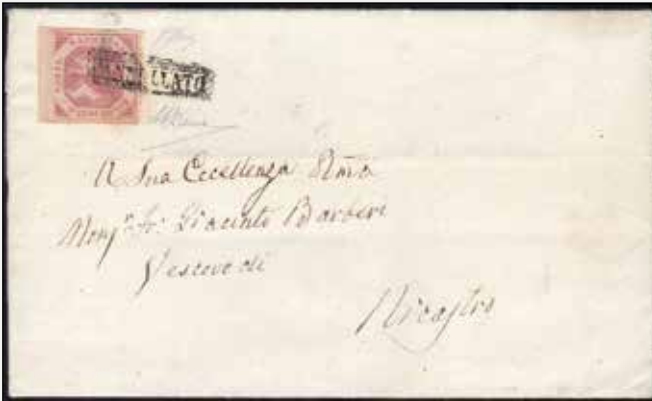 ANNULLATO
A Sua Eccellenza Rma
Monsr Fr: Giacinto Barberi
Vescovo di
Nicastro